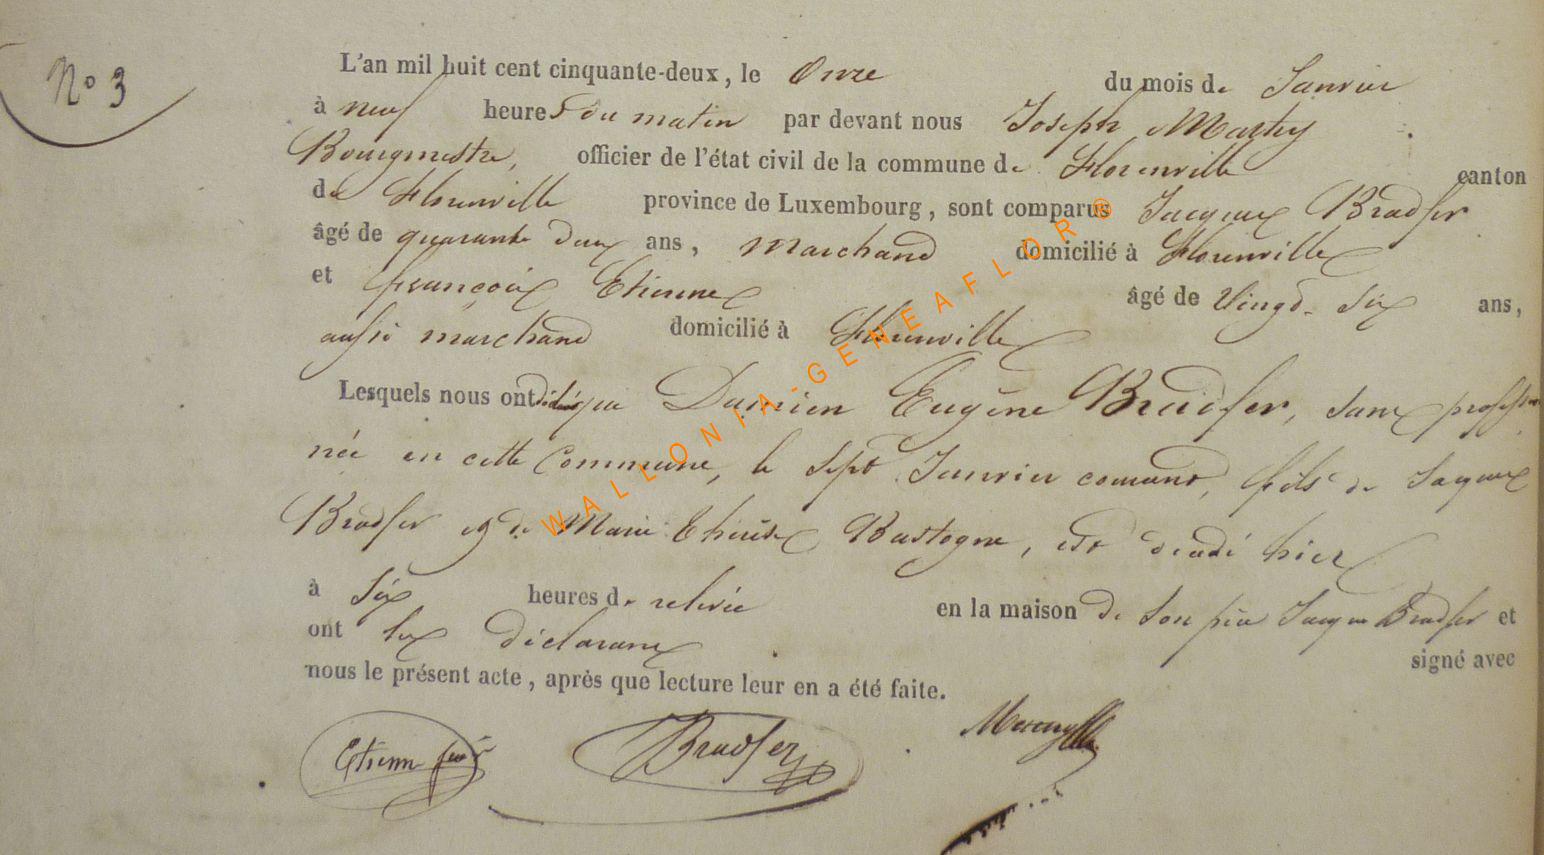 N° 3
L'an mil huit cent cinquante-deux, le Onze du mois de Janvier
à neuf heures du matin par devant nous Joseph
Bourgmestre, officier de l'état civil de la commune de Florenville canton
de Florenville province de Luxembourg, sont comparus Jacques Bradfer
âgé de quarante deux ans, marchand domicilié à Florenville
et françois Etienne âgé de Vingt-six ans,
aussi marchand domicilié à Florenville
Lesquels nous ont déclaré que Damien Eugène Bradfer, sans profession
née en cette Commune, le sept Janvier courant, fils de Jacques
Bradfer et de Marie Thérèse Bastogne, est décédé hier
à six heures de relevée en la maison de son père Jacques Bradfer et
ont les déclarans signé avec
nous le présent acte, après que lecture leur en a été faite.
Etienne Bradfer
WALLONIA-GENEAFLOR®